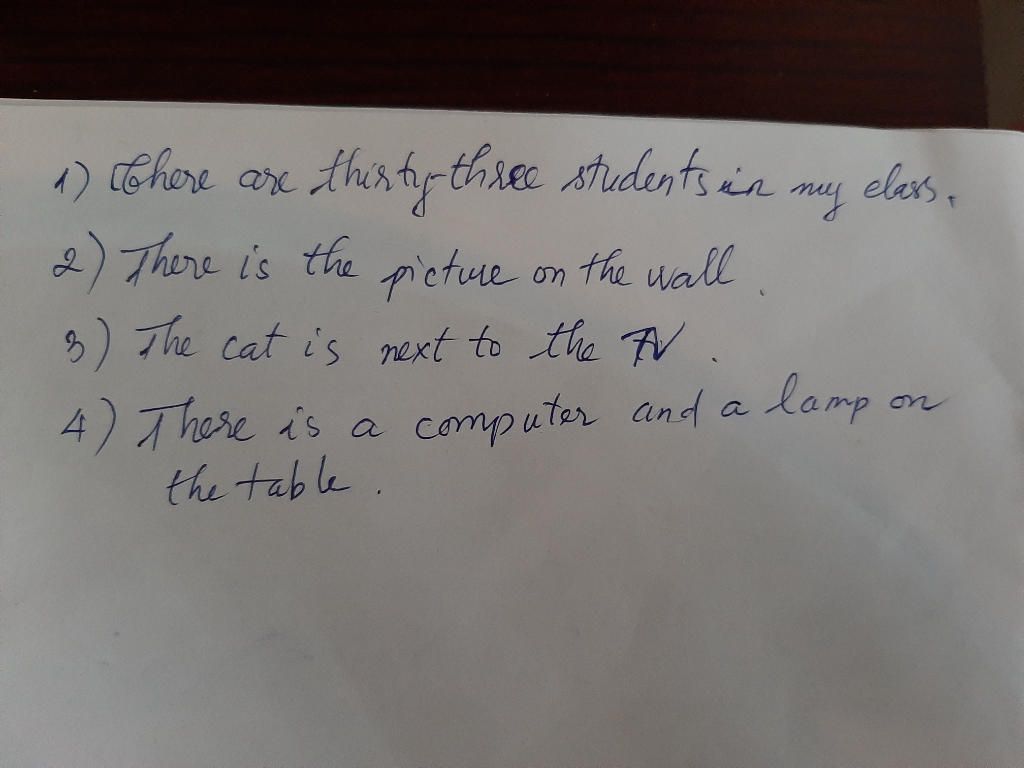 1) There are thirty-three students in my class.
2) There is the picture on the wall.
3) The cat is next to the TV.
4) There is a computer and a lamp on
the table.